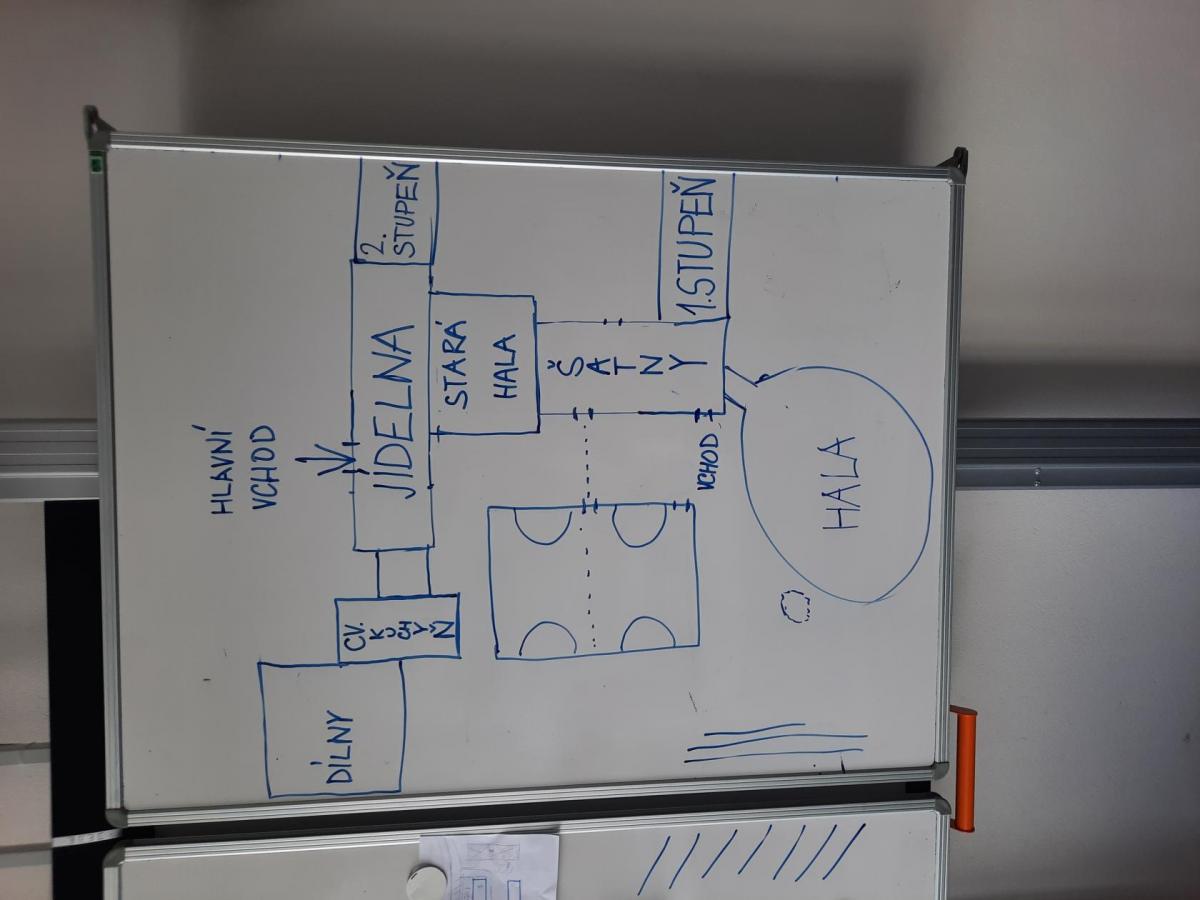 HLAVNÍ
VCHOD
DÍLNY
CV.
K
U
CH
Y
Ň
JÍDELNA
2.
STUPEŇ
STARÁ
HALA
Š
A
T
N
Y
1.STUPEŇ
VCHOD
HALA